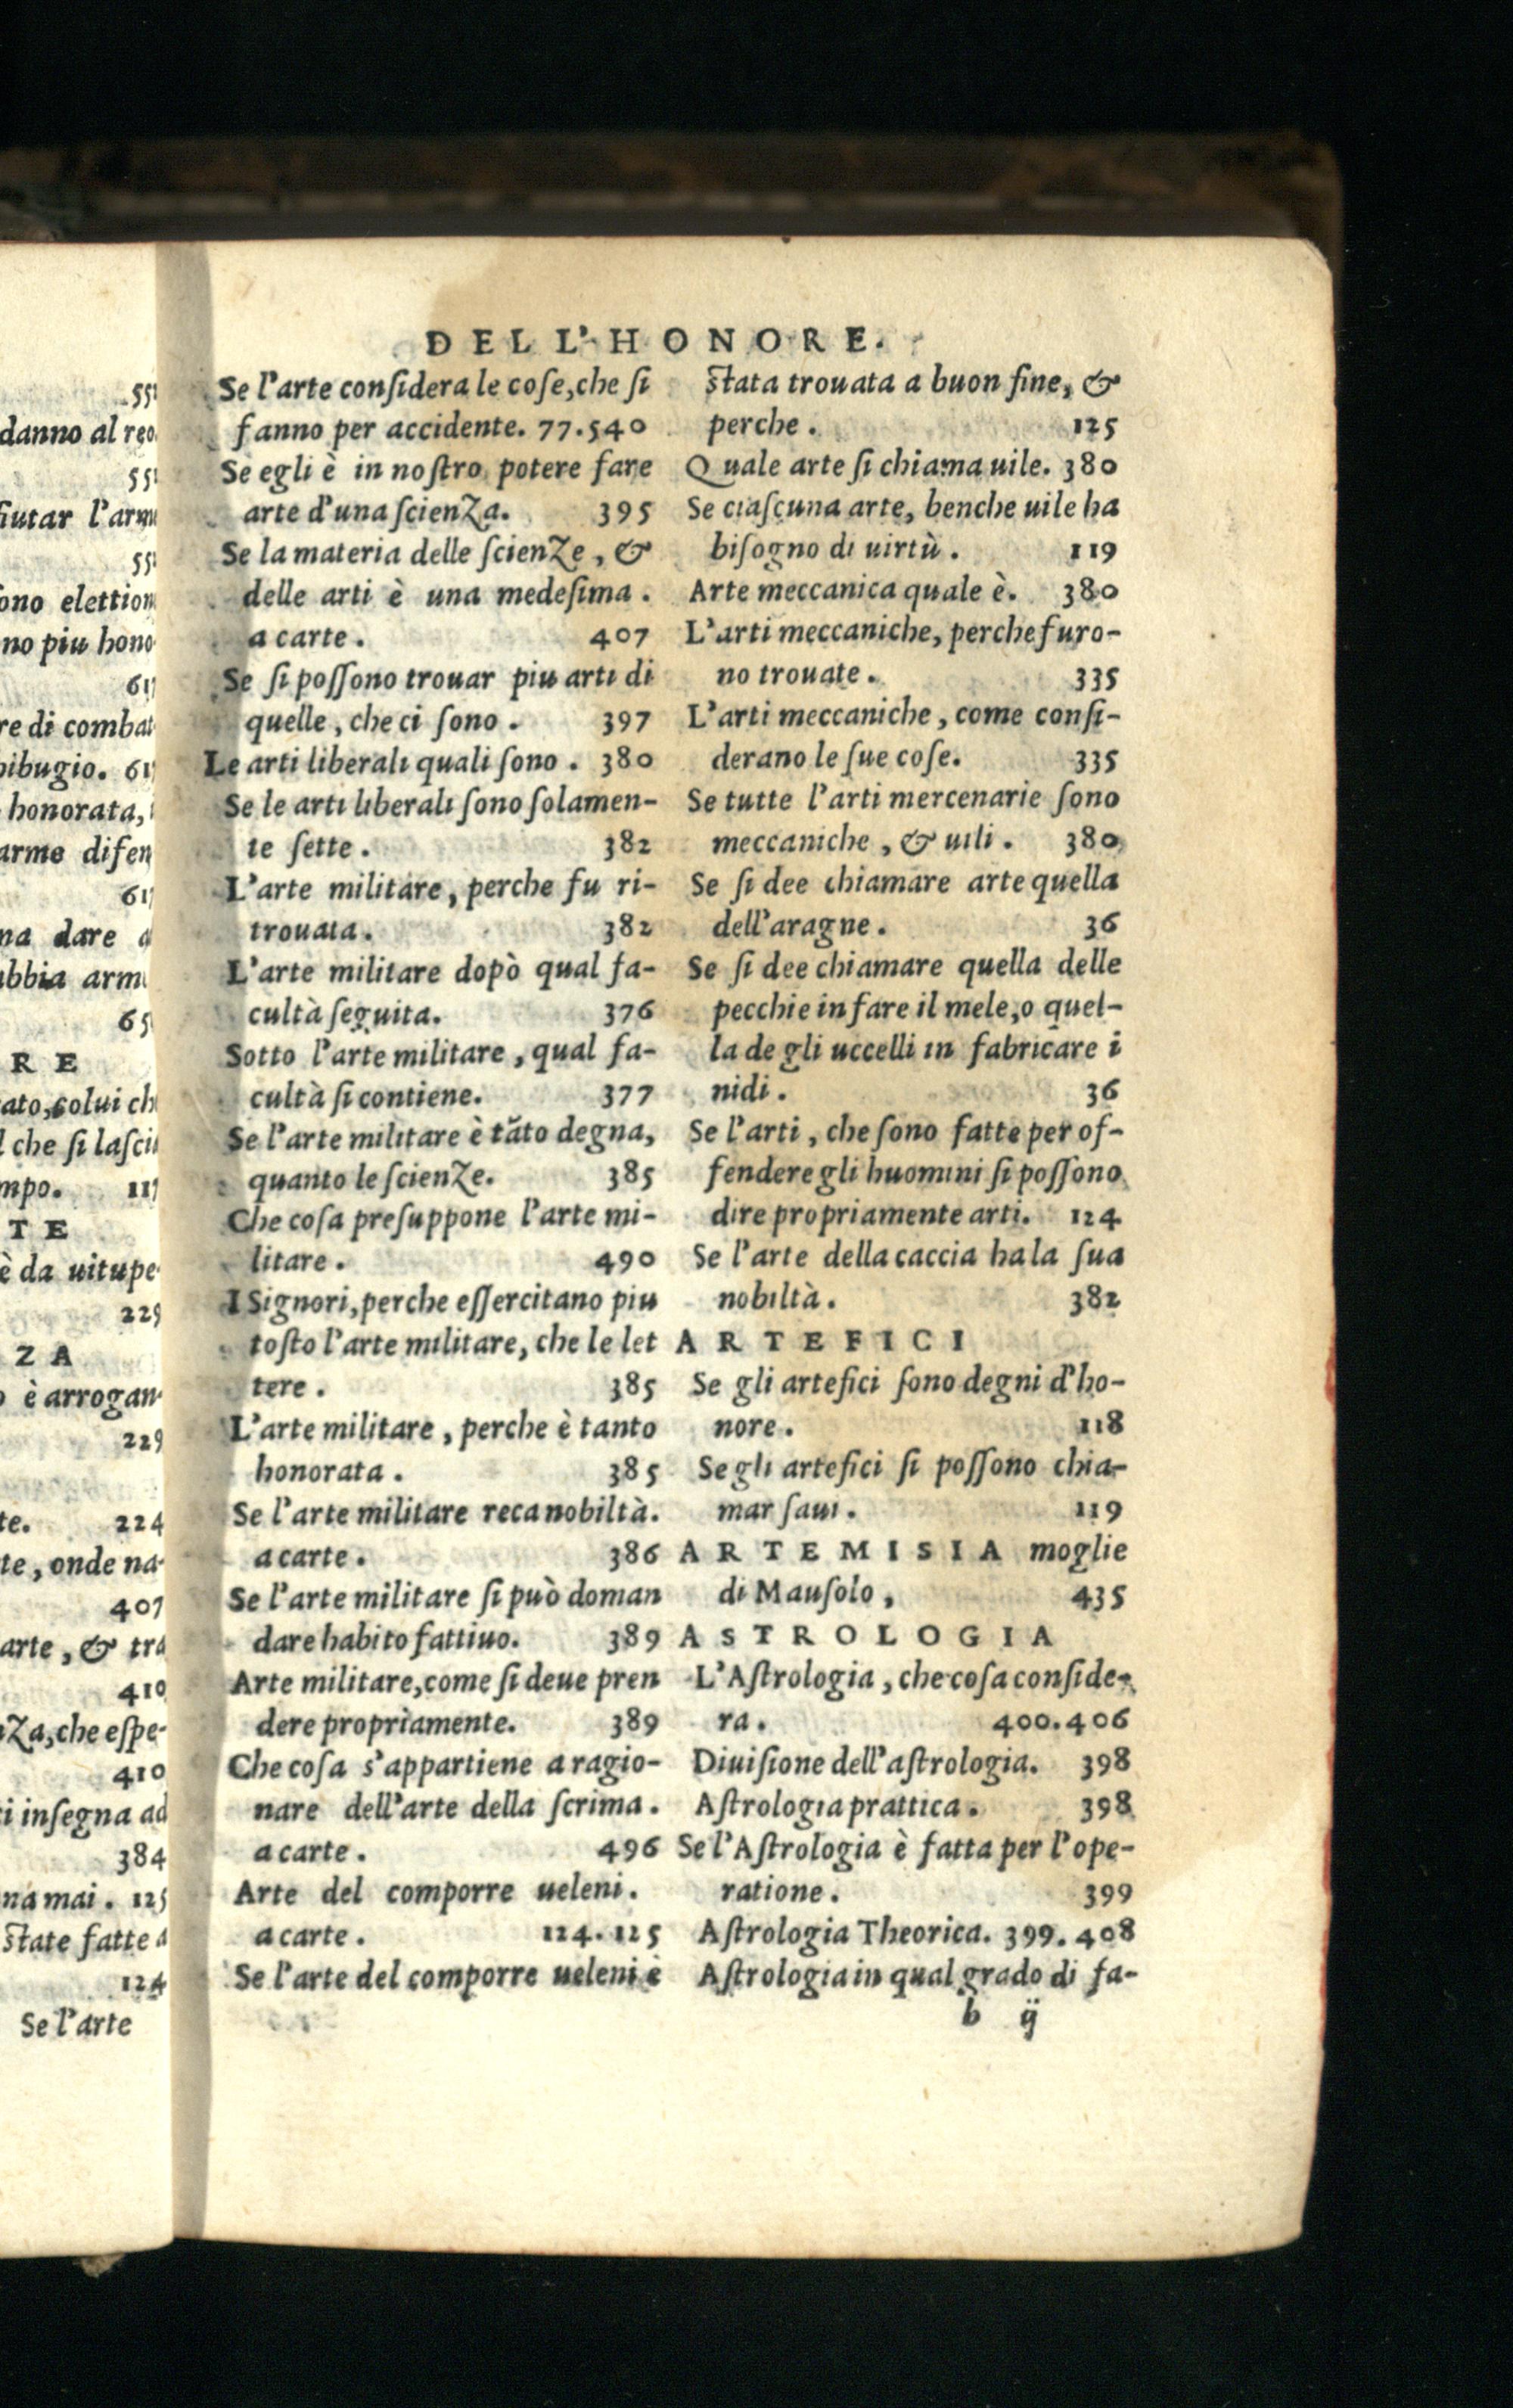 55
danno al reo
55
fiutar l'arm
55
ono elettion
no piu hono
61
re di combat
bibugio. 61
honorata,
arme difen
61
na dare a
abbia arm
65
R E
ato, colui ch
che si lasci
mpo. 11
T E
è da uitupe-
229
Z A
è arrogan-
229
te. 224
te, onde na-
407
arte, & tra
410
Za, che espe-
410
i insegna ad
384
na mai. 125
state fatte a
124
Se l'arte
DELL'HONORE.
Se l'arte considera le cose, che si
fanno per accidente. 77.540
Se egli è in nostro potere fare
arte d'una scienZa. 395
Se la materia delle scienZe, &
delle arti è una medesima.
a carte. 407
Se si possono trouar piu arti di
quelle, che ci sono. 397
Le arti liberali quali sono. 380
Se le arti liberali sono solamen-
te sette. 382
L'arte militare, perche fu ri-
trouata. 382
L'arte militare dopò qual fa-
cultà seguita. 376
Sotto l'arte militare, qual fa-
cultà si contiene. 377
Se l'arte militare è tãto degna,
quanto le scienZe. 385
Che cosa presuppone l'arte mi-
litare. 490
I Signori, perche essercitano piu
tosto l'arte militare, che le let
tere. 385
L'arte militare, perche è tanto
honorata. 385
Se l'arte militare reca nobiltà.
a carte. 386
Se l'arte militare si può doman
dare habito fattiuo. 389
Arte militare, come si deue pren
dere propriamente. 389
Che cosa s'appartiene a ragio-
nare dell'arte della scrima.
a carte. 496
Arte del comporre ueleni.
a carte. 124.125
Se l'arte del comporre ueleni è
stata trouata a buon fine, &
perche. 125
Quale arte si chiama uile. 380
Se ciascuna arte, benche uile ha
bisogno di uirtù. 119
Arte meccanica quale è. 380
L'arti meccaniche, perche furo-
no trouate. 335
L'arti meccaniche, come consi-
derano le sue cose. 335
Se tutte l'arti mercenarie sono
meccaniche, & uili. 380
Se si dee chiamare arte quella
dell'aragne. 36
Se si dee chiamare quella delle
pecchie in fare il mele, o quel-
la de gli uccelli in fabricare i
nidi. 36
Se l'arti, che sono fatte per of-
fendere gli huomini si possono
dire propriamente arti. 124
Se l'arte della caccia ha la sua
nobiltà. 382
ARTEFICI
Se gli artefici sono degni d'ho-
nore. 118
Se gli artefici si possono chia-
mar saui. 119
ARTEMISIA moglie
di Mausolo, 435
ASTROLOGIA
L'Astrologia, che cosa conside-
ra. 400.406
Diuisione dell'astrologia. 398
Astrologia prattica. 398
Se l'Astrologia è fatta per l'ope-
ratione. 399
Astrologia Theorica. 399.408
Astrologia in qual grado di fa-
b ij